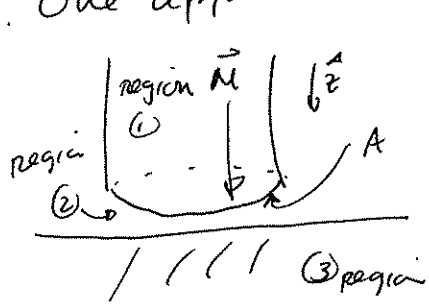 One
region M⃗
①
ẑ
A
region
②
③ region